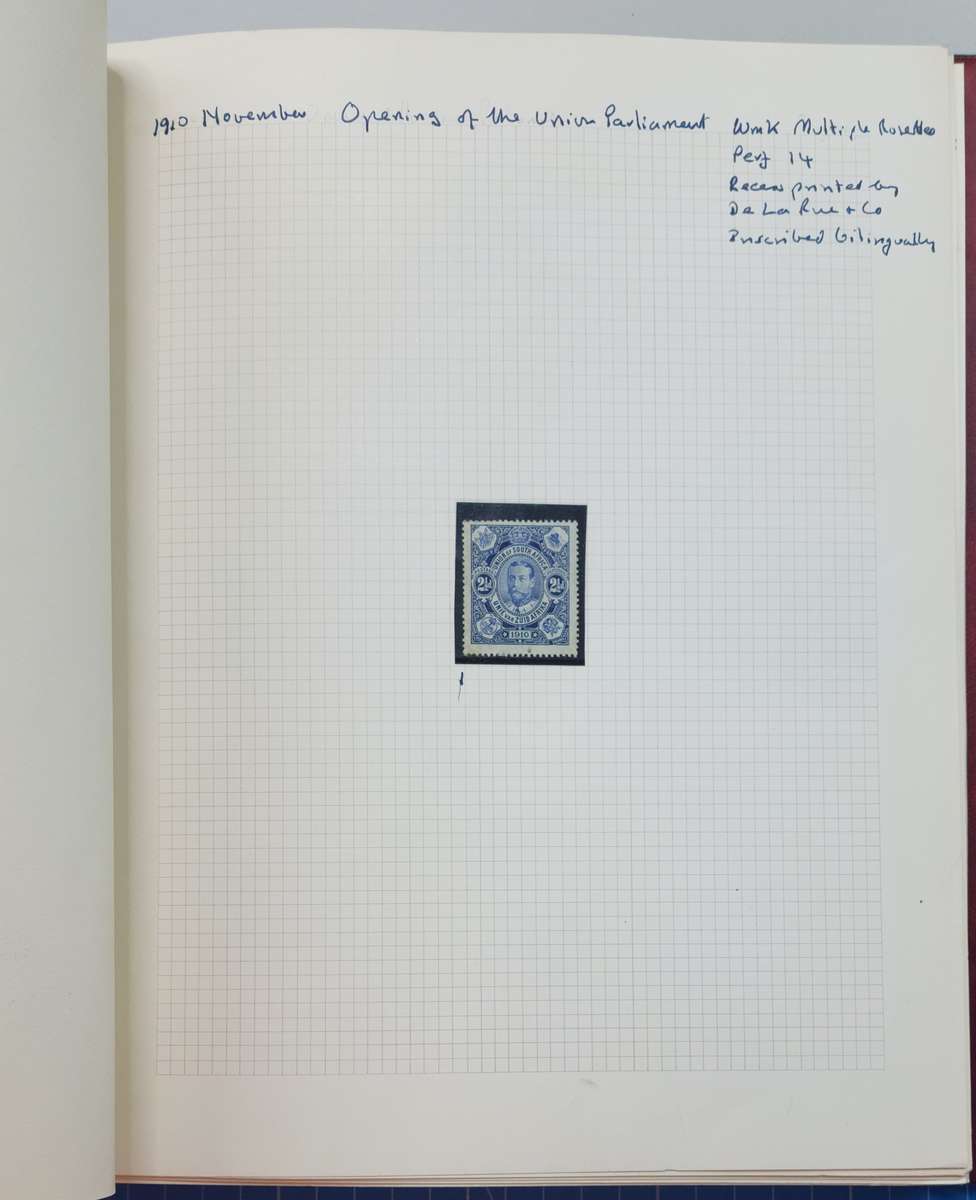 1910 November Opening of the Union Parliament
Wmk Multiple Rosettes
Perf 14
Recess printed by
De La Rue + Co
Inscribed bilingually
UNION OF SOUTH AFRICA
2½d 2½d
UNIE VAN ZUID AFRIKA
1910